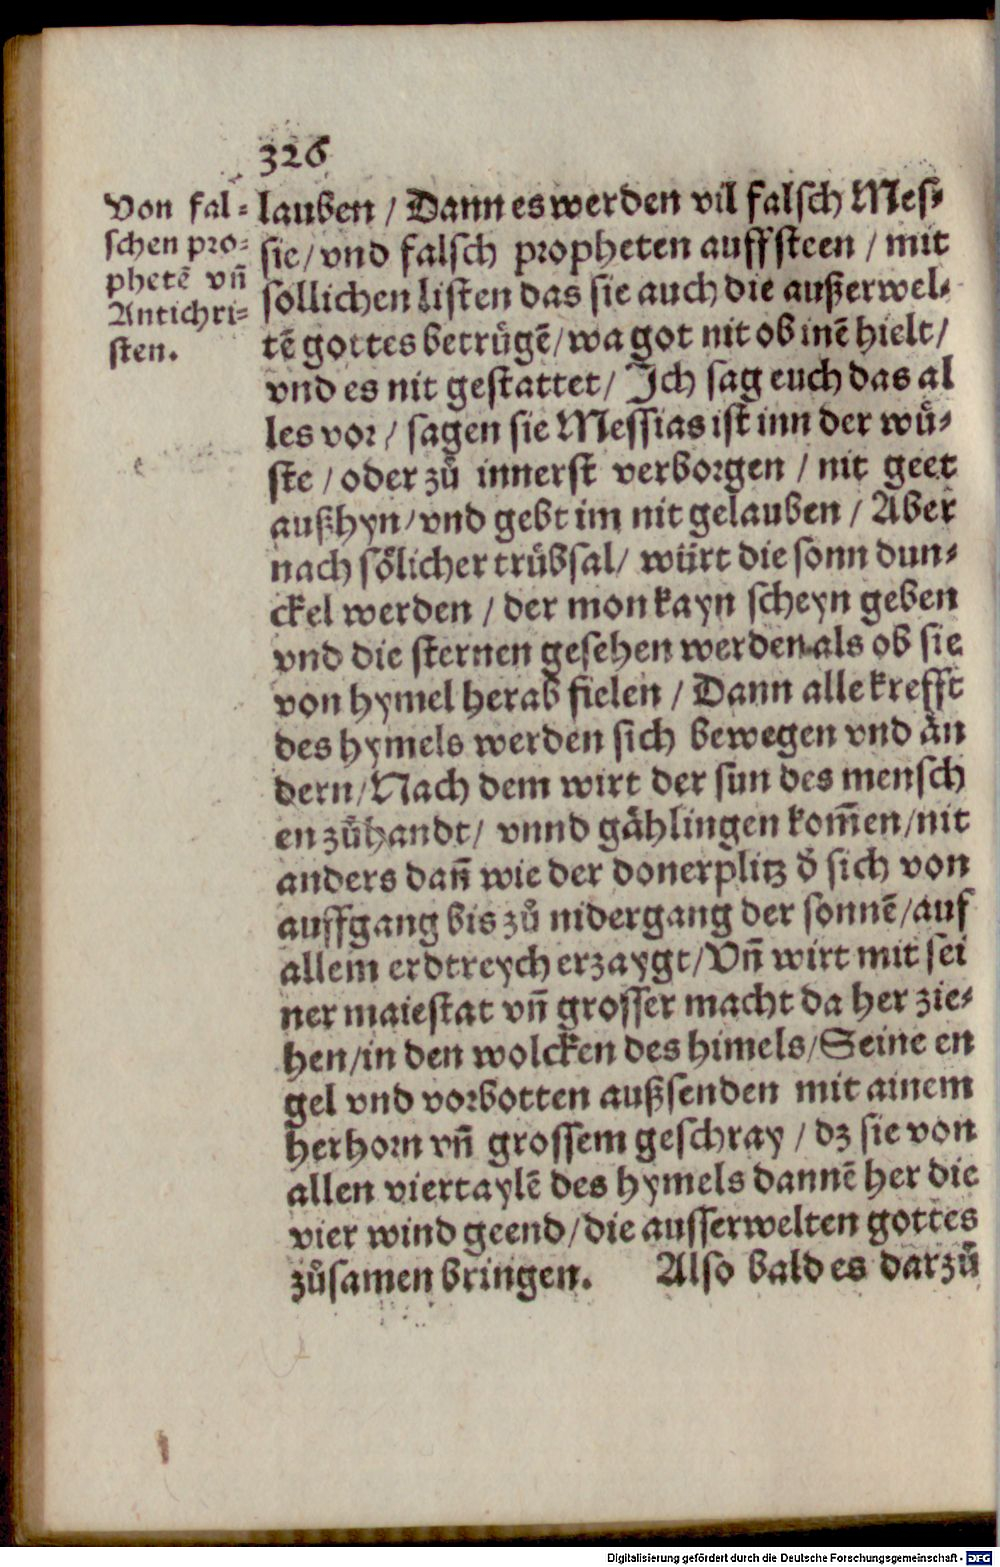 326
Von fal⸗
schen pro⸗
phetē vñ
Antichri⸗
sten.
lauben / Dann es werden vil falsch Mes⸗
sie / vnd falsch propheten auffsteen / mit
söllichen listen das sie auch die außerwel⸗
tē gottes betrügē / wa got nit ob inē hielt /
vnd es nit gestattet / Ich sag euch das al
les vor / sagen sie Messias ist inn der wuͤ⸗
ste / oder zuͦ innerst verborgen / nit geet
außhyn / vnd gebt im nit gelauben / Aber
nach soͤlicher truͤbsal / würt die sonn dun⸗
ckel werden / der mon kayn scheyn geben
vnd die sternen gesehen werden als ob sie
von hymel herab fielen / Dann alle krefft
des hymels werden sich bewegen vnd aͤn
dern / Nach dem wirt der sun des mensch
en zuͦhandt / vnnd gaͤhlingen kom̄en / nit
anders dan̄ wie der donerplitz d̓ sich von
auffgang bis zuͦ nidergang der sonnē / auf
allem erdtreych erzaygt / Vn̄ wirt mit sei
ner maiestat vn̄ grosser macht da her zie⸗
hen / in den wolcken des himels / Seine en
gel vnd vorbotten außsenden mit ainem
herhorn vn̄ grossem geschray / dz sie von
allen viertaylē des hymels dannē her die
vier wind geend / die ausserwelten gottes
zuͦsamen bringen. Also bald es darzuͦ
Digitalisierung gefördert durch die Deutsche Forschungsgemeinschaft - DFG